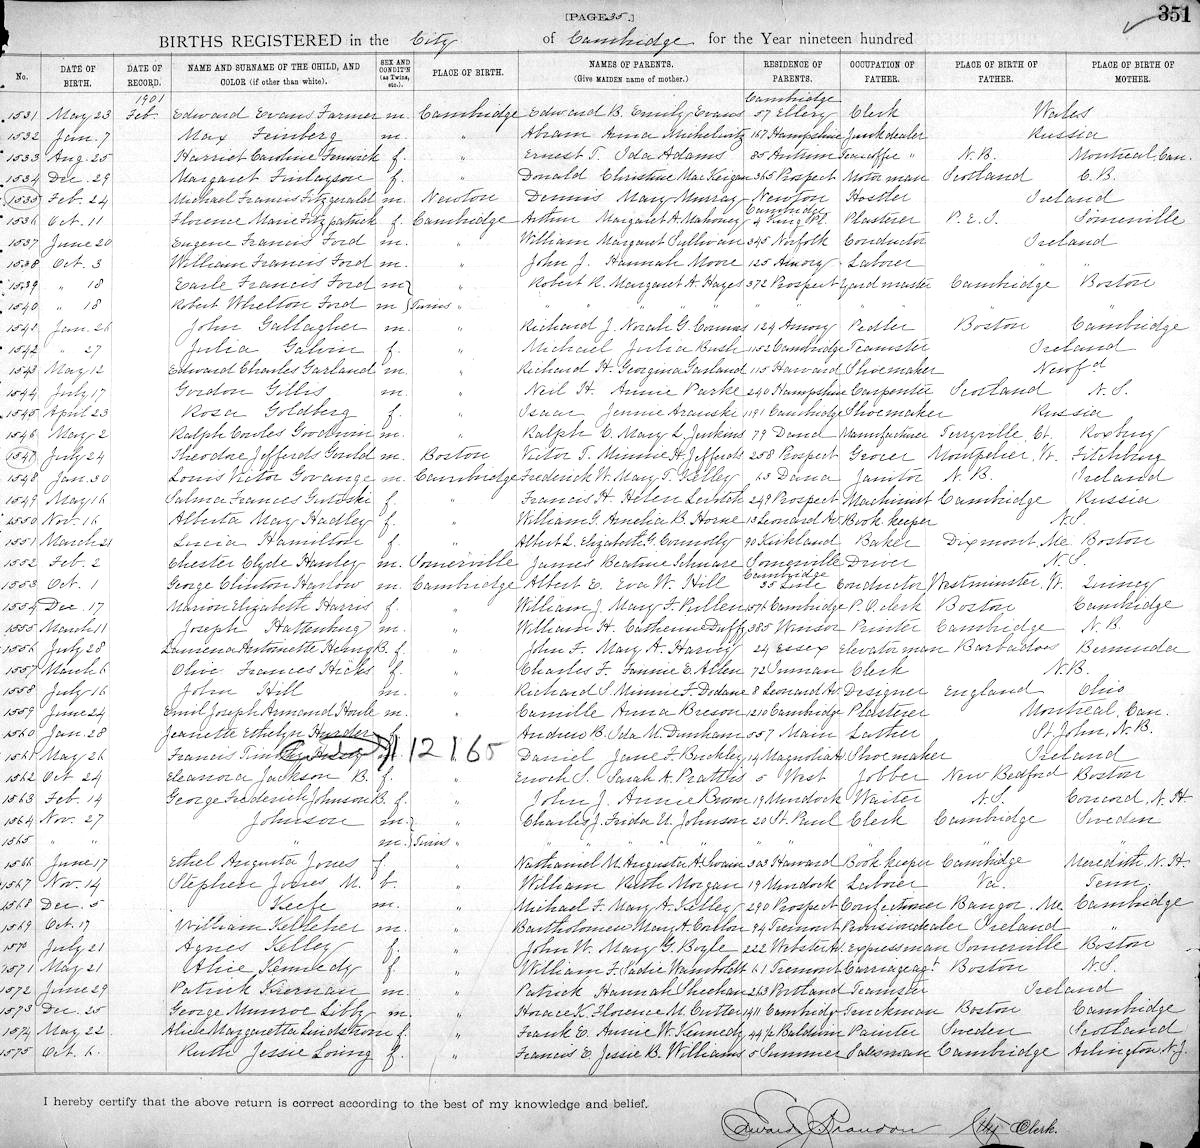 [PAGE 35.]
351
BIRTHS REGISTERED in the City of Cambridge for the Year nineteen hundred
No. DATE OF BIRTH. DATE OF RECORD. NAME AND SURNAME OF THE CHILD, AND COLOR (if other than white). SEX AND CONDIT'N (as Twins, etc.). PLACE OF BIRTH. NAMES OF PARENTS. (Give MAIDEN name of mother.) RESIDENCE OF PARENTS. OCCUPATION OF FATHER. PLACE OF BIRTH OF FATHER. PLACE OF BIRTH OF MOTHER.
1901 Cambridge
1531 May 23 Feb. Edward Evans Farmer m. Cambridge Edward B. Emily Evans 57 Ellery Clerk Wales
1532 Jan. 7 Max Feinberg m. " Abram Anna 167 Hampshire Junk dealer Russia
1533 Aug. 25 Harriet Caroline Fenwick f. " Ernest T. Ida Adams 35 Antrim N.B. Montreal Can.
1534 Dec. 29 Margaret Finlayson f. " Donald Christine MacKeigan 365 Prospect Motorman Scotland C.B.
1535 Feb. 24 Michael Francis Fitzgerald m. Newton Dennis Mary Murray Newton Hostler Ireland
1536 Oct. 11 Florence Marie Fitzpatrick f. Cambridge Arthur Margaret H. Mahoney Cambridge 4 King Pl. Plasterer P.E.I. Somerville
1537 June 20 Eugene Francis Ford m. " William Margaret Sullivan 345 Norfolk Conductor Ireland
1538 Oct. 3 William Francis Ford m. " John J. Hannah Moore 125 Amory Laborer " "
1539 " 18 Earle Francis Ford m " Robert R. Margaret A. Hayes 372 Prospect Yard master Cambridge Boston
1540 " 18 Robert Whelton Ford m Twins " " " " " " " "
1541 Jan. 26 John Gallagher m. " Richard J. Norah G. Connors 124 Amory Pedler Boston Cambridge
1542 " 27 Julia Galvin f. " Michael Julia Bush 1152 Cambridge Teamster Ireland
1543 May 12 Edward Charles Garland m. " Richard H. Georgina Garland 115 Harvard Shoemaker Newf'd
1544 July 17 Gordon Gillis m. " Neil H. Annie Parke 240 Hampshire Carpenter Scotland N.S.
1545 April 23 Rosa Goldberg f. " Isaac Jennie 1191 Cambridge Shoemaker Russia
1546 May 2 Ralph Cowles Goodwin m. " Ralph C. Mary L. Jenkins 79 Dana Manufacturer Terryville Ct. Roxbury
1547 July 24 Theodore Jefferds Gould m. Boston Victor T. Minnie H. Jefferds 258 Prospect Grocer Montpelier, Vt. Fitchburg
1548 Jan. 30 Louis Victor Govange m. Cambridge Frederick W. Mary T. Kelley 63 Dana Janitor N.B. Ireland
1549 May 16 Salma Frances f. " Francis H. Helen 249 Prospect Machinist Cambridge Russia
1550 Nov. 16 Alberta May Hadley f. " William G. Amelia B. Horne 13 Leonard Av. Book keeper N.S.
1551 March 21 Lucia Hamilton f. " Albert L. Elizabeth G. Connolly 90 Kirkland Baker Dixmont Me Boston
1552 Feb. 2 Chester Clyde Hanley m. Somerville James Beatrice Schnare Somerville Driver N.S.
1553 Oct. 1 George Clinton Harlow m. Cambridge Albert E. Eva W. Hill Cambridge 35 Lisle Conductor Westminster, Vt. Quincy
1554 Dec. 17 Marion Elizabeth Harris f. " William J. Mary F. Pullen 1576 Cambridge P.O. clerk Boston Cambridge
1555 March 11 Joseph Hattenburg m. " William H. Catherine Duffy 385 Windsor Printer Cambridge N.B.
1556 July 28 Antoinette Henry B. f. " John F. Mary A. Harvey 24 Essex Elevator man Barbadoes Bermuda
1557 March 6 Olive Frances Hicks f. " Charles F. Fannie E. Allen 72 Inman Clerk N.B.
1558 July 16 John Hill m. " Richard S. Minnie F. Dodane 8 Leonard Av. Designer England Ohio
1559 June 24 Emil Joseph Armand Houle m. " Camille Anna Breson 1210 Cambridge Plasterer Montreal, Can.
1560 Jan. 28 Jeanette Ethelyn f. Andrew B. Ida M. Dunham 557 Main Lather St John, N.B.
1561 May 26 Francis 12 1 65 Daniel Jane F. Buckley 14 Magnolia Av Shoemaker Ireland
1562 Oct 24 Eleanora Jackson B. f. " Enoch S. Sarah A. Prattis 5 West Jobber New Bedford Boston
1563 Feb. 14 George Frederick Johnson B. f. " John J. Annie Brown 19 Murdock Waiter N.S. Concord, N.H.
1564 Nov. 27 Johnson m. " Charles J. Frida U. Johnson 20 St. Paul Clerk Cambridge Sweden
1565 " " " m. Twins " " " " " " "
1566 June 17 Ethel Augusta Jones f. " Nathaniel M. Augusta A. Swain 303 Harvard Book keeper Cambridge Meredith, N.H.
1567 Nov. 14 Stephen Jones M. b. " William Ruth Morgan 19 Murdock Laborer Va. Tenn.
1568 Dec. 5 Keefe m. " Michael F. Mary A. Kelley 290 Prospect Confectioner Bangor, Me. Cambridge
1569 Oct. 17 William Kelleher m. " Bartholomew Mary A. Conlon 94 Tremont Provision dealer Ireland "
1570 July 21 Agnes Kelley f. " John W. Mary G. Boyle 222 Webster Av. Expressman Somerville Boston
1571 May 21 Alice Kennedy f. " William F. Sadie Wamboldt 61 Tremont Carriage ag't Boston N.S.
1572 June 29 Patrick Kiernan m. " Patrick Hannah Sheehan 263 Portland Teamster Ireland
1573 Dec. 25 George Munroe Libby m. " Horace K. Florence M. Cutter 1411 Cambridge Truckman Boston Cambridge
1574 May 22 Alice Margaretta Lindstrom f. " Frank E. Annie W. Kennedy 44½ Baldwin Painter Sweden Scotland
1575 Oct. 6 Ruth Jessie Loring f. " Francis E. Jessie B. Williams 5 Summer Salesman Cambridge Arlington, N.J.
I hereby certify that the above return is correct according to the best of my knowledge and belief.
Edward J. Brandon City Clerk.